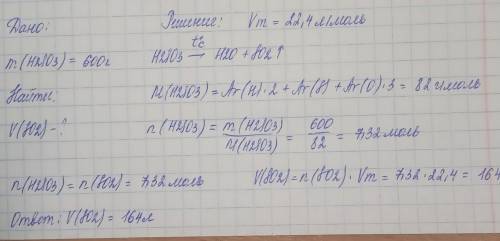 Дано:
Решение: Vm = 22,4 л/моль
m(H2SO3) = 600г
H2SO3 t°c→ H2O + SO2↑
Найти:
M(H2SO3) = Ar(H)·2 + Ar(S) + Ar(O)·3 = 82 г/моль
V(SO2) - ?
n(H2SO3) = m(H2SO3)/M(H2SO3) = 600/82 = 7,32 моль
n(H2SO3) = n(SO2) = 7,32 моль
V(SO2) = n(SO2) · Vm = 7,32 · 22,4 = 164
Ответ: V(SO2) = 164л